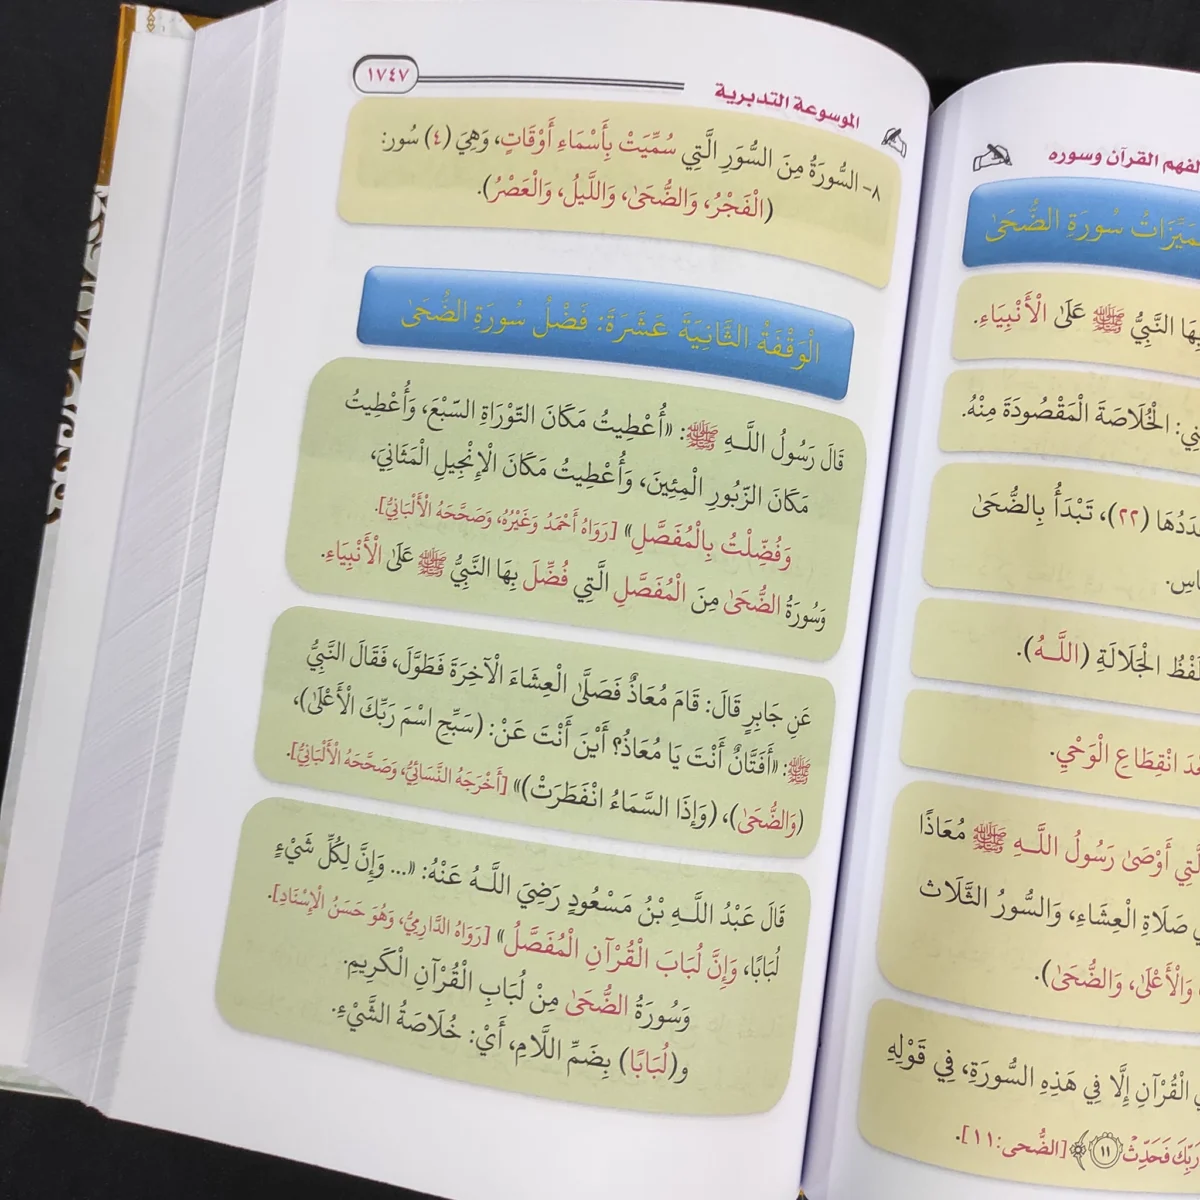 لفهم القرآن وسوره
سُورَةِ الضُّحَىٰ
النَّبِيُّ ﷺ عَلَىٰ الْأَنْبِيَاءِ.
الْخُلَاصَةَ الْمَقْصُودَةَ مِنْهُ.
(٢٢)، تَبْدَأُ بِالضُّحَىٰ
الْجَلَالَةِ (اللَّـهُ).
انْقِطَاعِ الْوَحْيِ.
أَوْصَىٰ رَسُولُ اللَّـهِ ﷺ مُعَاذًا
صَلَاةِ الْعِشَاءِ، وَالسُّورُ الثَّلَاث
وَالْأَعْلَىٰ، وَالضُّحَىٰ).
الْقُرْآنِ إِلَّا فِي هَذِهِ السُّورَةِ، فِي قَوْلِهِ
رَبِّكَ فَحَدِّثْ ١١﴾ [الضُّحى:١١].
الموسوعة التدبرية
١٧٤٧
٨- السُّورَةُ مِنَ السُّوَرِ الَّتِي سُمِّيَتْ بِأَسْمَاءِ أَوْقَاتٍ، وَهِيَ (٤) سُور:
(الْفَجْرُ، وَالضُّحَىٰ، وَاللَّيلُ، وَالْعَصْرُ).
الْوَقْفَةُ الثَّانِيَةَ عَشَرَةَ: فَضْلُ سُورَةِ الضُّحَىٰ
قَالَ رَسُولُ اللَّـهِ ﷺ: «أُعْطِيتُ مَكَانَ التَّوْرَاةِ السَّبْعَ، وَأُعْطِيتُ
مَكَانَ الزَّبُورِ الْمِئِينَ، وَأُعْطِيتُ مَكَانَ الْإِنْجِيلِ الْمَثَانِيَ،
وَفُضِّلْتُ بِالْمُفَصَّلِ» [رَوَاهُ أَحْمَدُ وَغَيْرُهُ، وَصَحَّحَهُ الْأَلْبَانِيُّ].
وَسُورَةُ الضُّحَىٰ مِنَ الْمُفَصَّلِ الَّتِي فُضِّلَ بِهَا النَّبِيُّ ﷺ عَلَىٰ الْأَنْبِيَاءِ.
عَنِ جَابِرٍ قَالَ: قَامَ مُعَاذٌ فَصَلَّىٰ الْعِشَاءَ الْآخِرَةَ فَطَوَّلَ، فَقَالَ النَّبِيُّ
ﷺ: «أَفَتَّانٌ أَنْتَ يَا مُعَاذُ؟ أَيْنَ أَنْتَ عَنْ: (سَبِّحِ اسْمَ رَبِّكَ الْأَعْلَىٰ)،
(وَالضُّحَىٰ)، (وَإِذَا السَّمَاءُ انْفَطَرَتْ)» [أَخْرَجَهُ النَّسَائِيُّ، وَصَحَّحَهُ الْأَلْبَانِيُّ].
قَالَ عَبْدُ اللَّـهِ بْنُ مَسْعُودٍ رَضِيَ اللَّـهُ عَنْهُ: «... وَإِنَّ لِكُلِّ شَيْءٍ
لُبَابًا، وَإِنَّ لُبَابَ الْقُرْآنِ الْمُفَصَّلُ» [رَوَاهُ الدَّارِمِيُّ، وَهُوَ حَسَنُ الْإِسْنَادِ].
وَسُورَةُ الضُّحَىٰ مِنْ لُبَابِ الْقُرْآنِ الْكَرِيمِ.
و(لُبَابًا) بِضَمِّ اللَّامِ، أَيْ: خُلَاصَةُ الشَّيْءِ.